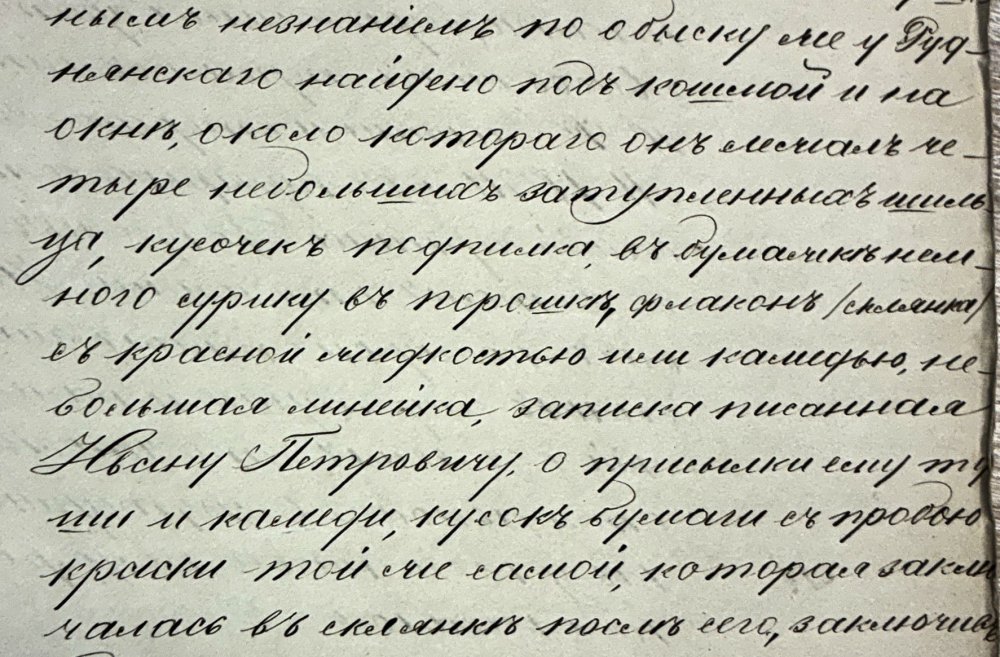 нымъ незнаніемъ по обыску же у Гуд-
нянскаго найдено подъ кошмой и на
окнѣ, около котораго онъ лежалъ че-
тыре небольшихъ затупленныхъ шиль
ца, кусочекъ подпилка, въ бумажкѣ нем-
ного сурику въ порошкѣ, флаконъ /склянка/
съ красной жидкостью или камедью, не-
большая линейка, записка писанная
Ивану Петровичу, о присылки ему ту
ши и камеди, кусокъ бумаги съ пробою
краски той же самой, которая заклю
чалась въ склянкѣ послѣ сего, заключивъ